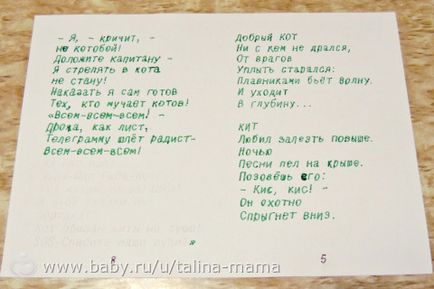 - Я, - кричит, -
не котобой!
Доложите капитану -
Я стрелять в кота
не стану!
Наказать я сам готов
Тех, кто мучает котов!
«Всем-всем-всем! -
Дрожа, как лист,
Телеграмму шлёт радист-
Всем-всем-всем!
8
Добрый кот
Ни с кем не дрался,
От врагов
Уплыть старался:
Плавниками бьёт волну,
И уходит
В глубину...
КИТ
Любил залезть повыше.
Ночью
Песни пел на крыше.
Позовёшь его:
- Кис, кис! -
Он охотно
Спрыгнет вниз.
5
www.baby.ru/u/talina-mama